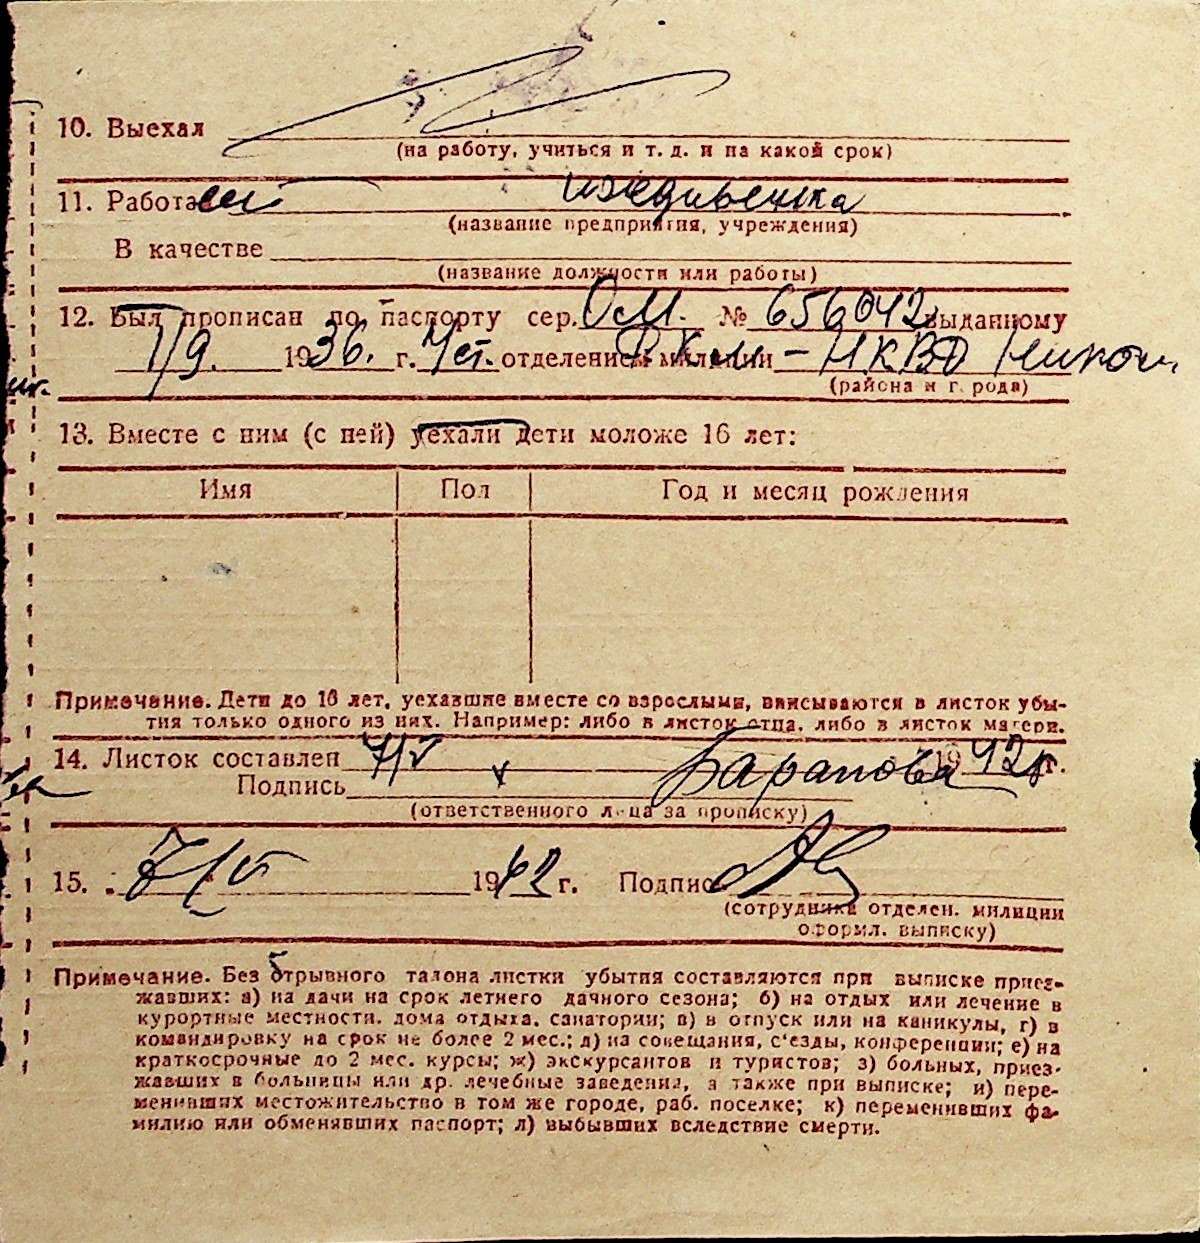 10. Выехал
(на работу, учиться и т. д. и на какой срок)
11. Работа иждивенка
(название предприятия, учреждения)
В качестве
(название должности или работы)
12. Был прописан по паспорту сер. ОМ. № 656042 выданному
1/9. 1936. г. 4 ст. отделением милиции РКМ - НКВД
(района и города)
13. Вместе с ним (с ней) уехали дети моложе 16 лет:
Имя Пол Год и месяц рождения
Примечание. Дети до 16 лет, уехавшие вместе со взрослыми, вписываются в листок убы-
тия только одного из них. Например: либо в листок отца, либо в листок матери.
14. Листок составлен 7/V 1942 г.
Подпись Баранова
(ответственного лица за прописку)
15. 7/V 1942 г. Подпись
(сотрудника отделен. милиции
оформл. выписку)
Примечание. Без отрывного талона листки убытия составляются при выписке приез-
жавших: а) на дачи на срок летнего дачного сезона; б) на отдых или лечение в
курортные местности, дома отдыха, санатории; в) в отпуск или на каникулы, г) в
командировку на срок не более 2 мес.; д) на совещания, с'езды, конференции; е) на
краткосрочные до 2 мес. курсы; ж) экскурсантов и туристов; з) больных, приез-
жавших в больницы или др. лечебные заведения, а также при выписке; и) пере-
менивших местожительство в том же городе, раб. поселке; к) переменивших фа-
милию или обменявших паспорт; л) выбывших вследствие смерти.